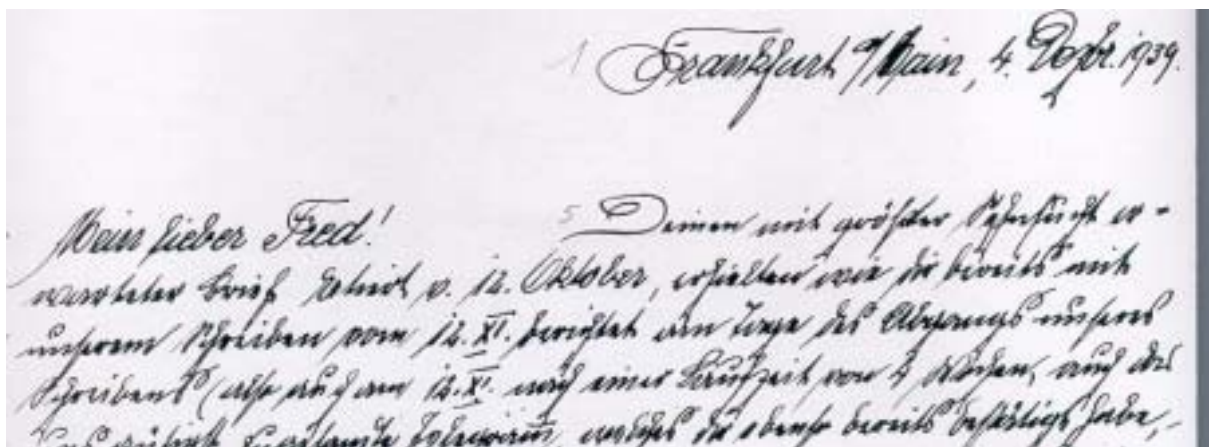 Frankfurt a/Main, 4. Dezbr. 1939.
Mein lieber Fred! Deinen mit größter Sehnsucht er-
warteter Brief datiert v. 12. Oktober, erhielten wir dir bereits mit
unserem Schreiben vom 12. XI. berichtet am Tage des Abgangs unseres
Schreibens (also auch am 12. XI. nach einer Laufzeit von 4 Wochen, auch das
Telegramm, welches dir ebenso bereits bestätigt habe,-